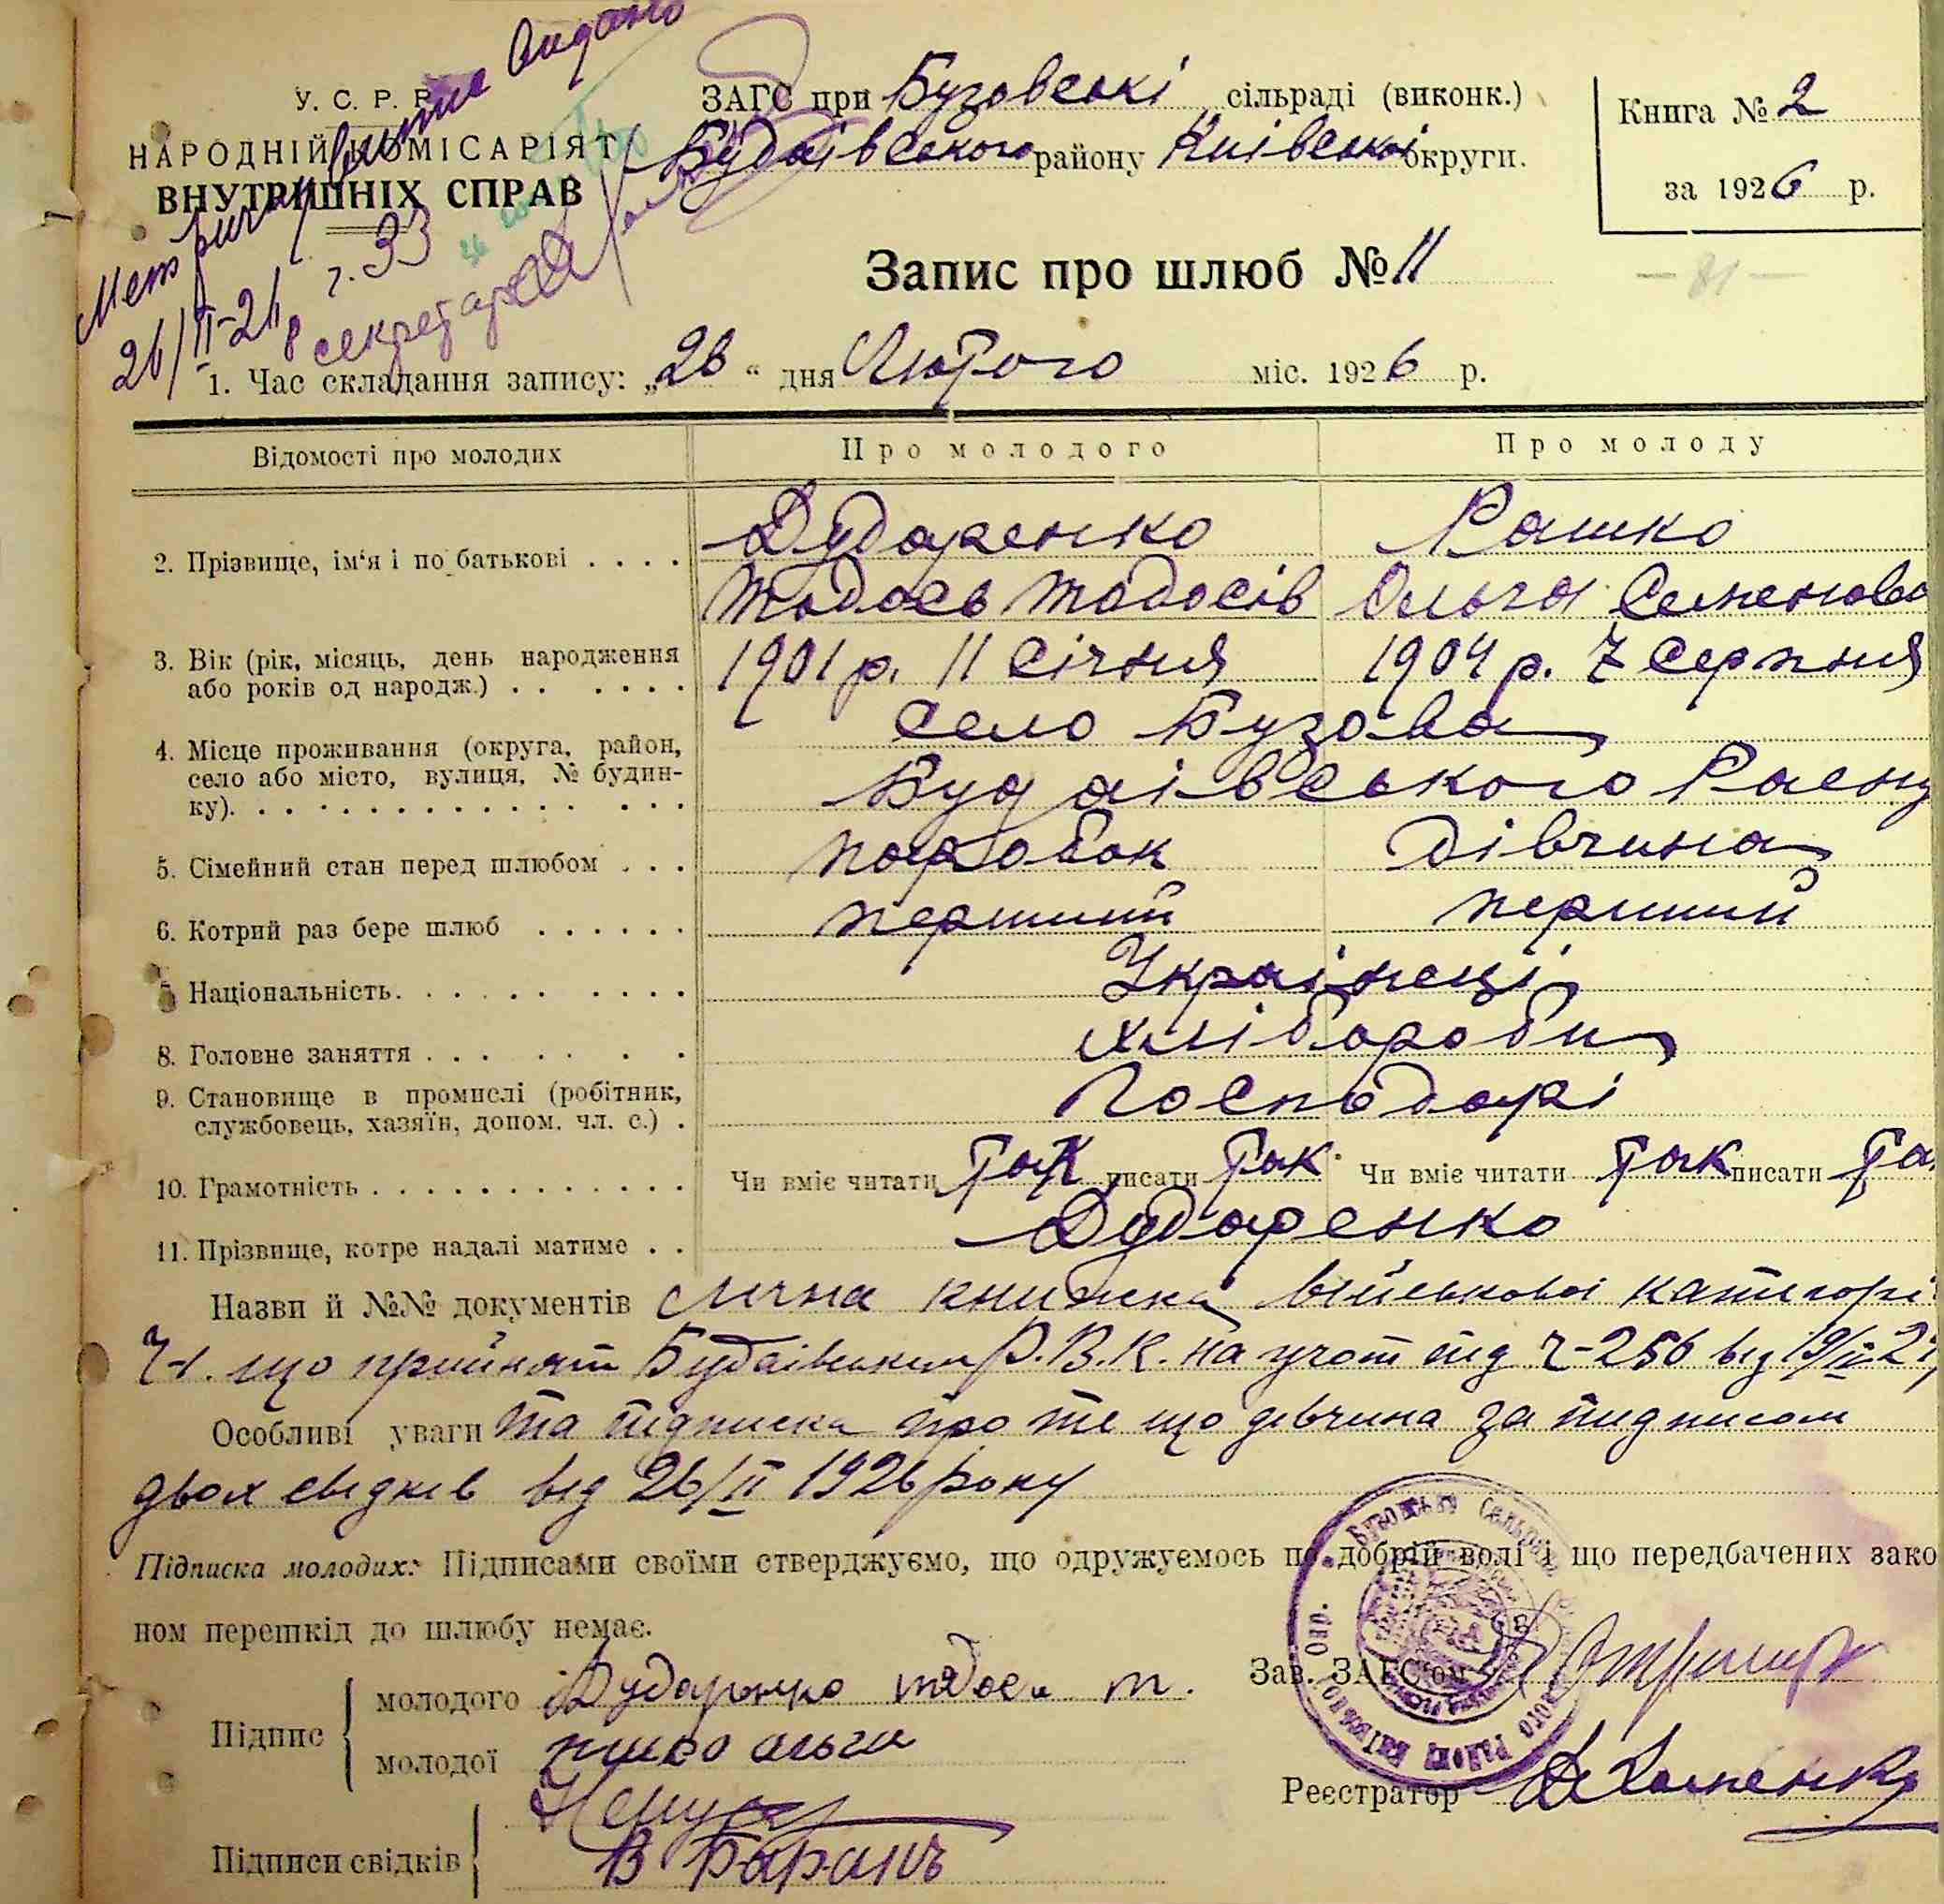 Метрична виписка видана
26/II-26р. г. 33
секретар
У. С. Р. Р.
НАРОДНІЙ КОМІСАРІЯТ
ВНУТРІШНІХ СПРАВ
ЗАГС при Бузовські сільраді (виконк.)
Будаівського району Київської округи.
Книга № 2
за 1926 р.
Запис про шлюб № 11
— 81 —
1. Час складання запису: „26“ дня Лютого міс. 1926 р.
Відомості про молодих Про молодого Про молоду
2. Прізвище, ім‘я і по батькові . . . . Дударенко Рашко
Тодось Тодосів Ольга Семенова
3. Вік (рік, місяць, день народження
або років од народж.) . . . . . . 1901 р. 11 Січня 1904 р. 7 Серпня
4. Місце проживання (округа, район, село Бузова
село або місто, вулиця, № будин-
ку). . . . . . . . . . . . . . . Будаівського Раену
5. Сімейний стан перед шлюбом . . . паробок дівчина
6. Котрий раз бере шлюб . . . . . . перший перший
Національність. . . . . . . . . . Українеці
8. Головне заняття . . . . . . . Хлібороби
9. Становище в промислі (робітник,
службовець, хазяїн, допом. чл. с.) . Господарі
10. Грамотність . . . . . . . . . . . . Чи вміє читати так писати так Чи вміє читати так писати та
11. Прізвище, котре надалі матиме . . Дударенко
Назви й №№ документів лична книжка військової катигорі
що прийнят Будаівським Р.В.К. на учот під г-256 від 19/
Особливі уваги та підписка про те що дівчина за підписом
двох свідків від 26/II 1926 року
Підписка молодих: Підписами своїми стверджуємо, що одружуємось по добрій волі і що передбачених зако
ном перешкід до шлюбу немає.
Підпис
молодого Дударенко тодось т.
молодої ольга
Зав. ЗАГС'ом
Реєстратор
Підписи свідків
В Баранъ